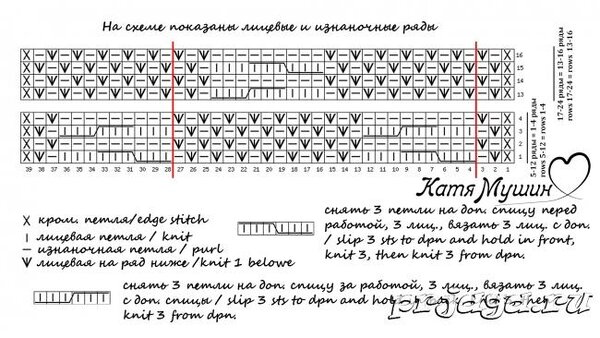 На схеме показаны лицевые и изнаночные ряды
16
15
14
13
4
3
2
1
39 38 37 36 35 34 33 32 31 30 29 28 27 26 25 24 23 22 21 20 19 18 17 16 15 14 13 12 11 10 9 8 7 6 5 4 3 2 1
5-12 ряды = 1-4 ряды
rows 5-12 = rows 1-4
17-24 ряды = 13-16 ряды
rows 17-24 = rows 13-16
Катя Мушин
X кром. петля/edge stitch
I лицевая петля / knit
– изнаночная петля / purl
лицевая на ряд ниже /knit 1 belowe
снять 3 петли на доп. спицу перед
работой, 3 лиц., вязать 3 лиц. с доп.
/ slip 3 sts to dpn and hold in front,
knit 3, then knit 3 from dpn.
снять 3 петли на доп. спицу за работой, 3 лиц., вязать 3 лиц.
с доп. спицы / slip 3 sts to dpn and
knit 3 from dpn.
prjaga.ru